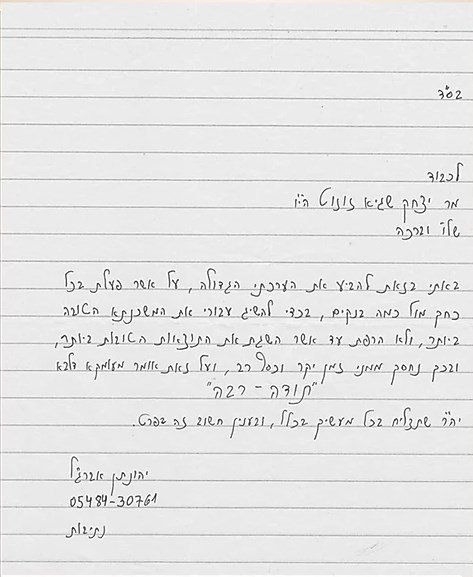 בס"ד
לכבוד
מר יצחק שגיא זוזוט הי"ו
שלו' וברכה
באתי בזאת להביע את הערכתי הגדולה, על אשר פעלת בכל
כחך מול כמה בנקים, בכדי להשיג עבורי את המשכנתא הטובה
ביותר, ולא הרפת עד אשר השגת את התוצאות הטובות ביותר,
ובכך נחסך ממני זמן יקר וכסף רב, ועל זאת אומר מעומקא דלבא
"תודה - רבה"
יה"ר שתצליח בכל מעשיך בכלל, ובענין חשוב זה בפרט.
יהונתן אברג'ל
05484-30761
נתיבות